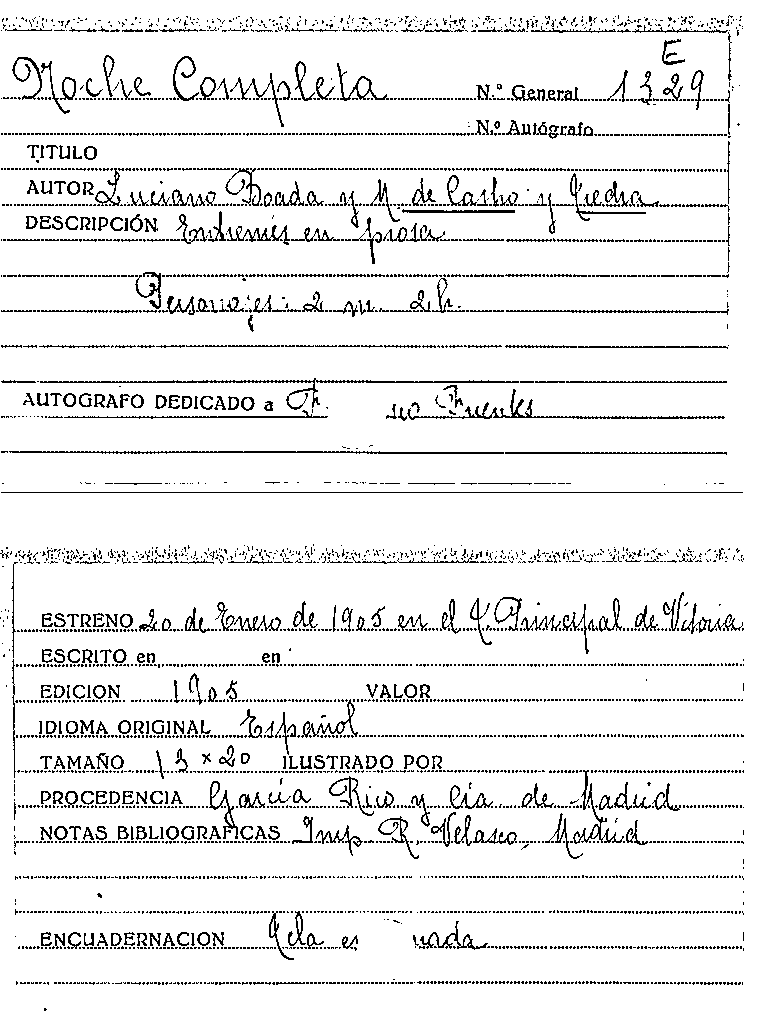 E
Noche Completa N.º General 1329
N.º Autógrafo
TITULO
AUTOR Luciano Boada y M. de Castro y Tiedra
DESCRIPCIÓN Entremés en prosa
Personajes: 2 m. 2 h.
AUTOGRAFO DEDICADO a Fuentes
ESTRENO 20 de Enero de 1905 en el T. Principal de Vitoria
ESCRITO en en
EDICION 1905 VALOR
IDIOMA ORIGINAL Español
TAMAÑO 13 x 20 ILUSTRADO POR
PROCEDENCIA García Rico y Cía. de Madrid
NOTAS BIBLIOGRAFICAS Imp. R. Velasco, Madrid
ENCUADERNACION Tela